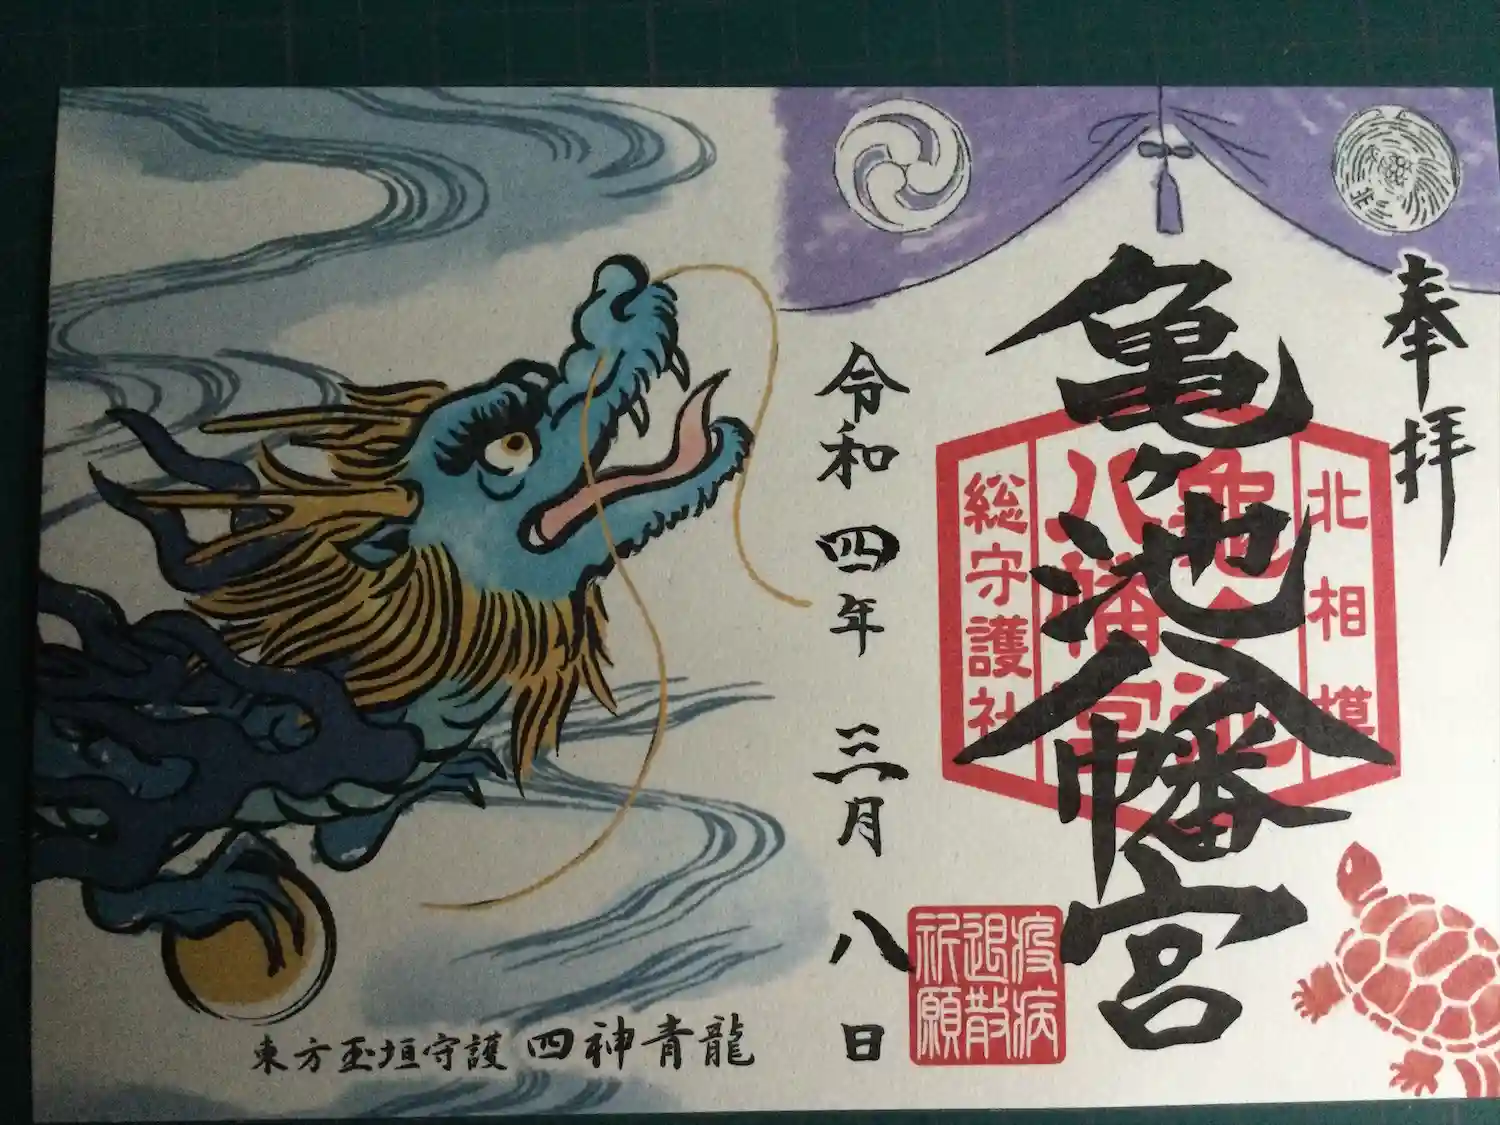 奉拝
亀ヶ池八幡宮
北相模
亀ヶ池
八幡宮
総守護社
疫病
退散
祈願
令和四年三月八日
東方玉垣守護 四神青龍